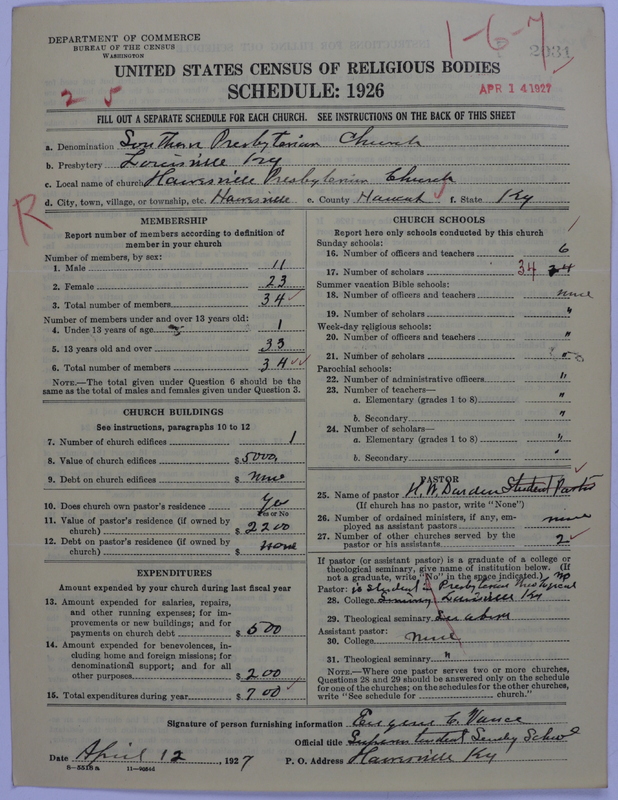 DEPARTMENT OF COMMERCE
BUREAU OF THE CENSUS
WASHINGTON
1-6-7
2031
UNITED STATES CENSUS OF RELIGIOUS BODIES
2 5
SCHEDULE: 1926
APR 14 1927
FILL OUT A SEPARATE SCHEDULE FOR EACH CHURCH. SEE INSTRUCTIONS ON THE BACK OF THIS SHEET
a. Denomination Southern Presbyterian Church
b. Presbytery Louisville Ky
c. Local name of church Hawesville Presbyterian Church
d. City, town, village, or township, etc. Hawesville e. County Hancock f. State Ky
R
MEMBERSHIP
Report number of members according to definition of
member in your church
Number of members, by sex:
1. Male 11
2. Female 23
3. Total number of members 34
Number of members under and over 13 years old:
4. Under 13 years of age 1
5. 13 years old and over 33
6. Total number of members 34
NOTE.—The total given under Question 6 should be
the same as the total of males and females given under Question 3.
CHURCH BUILDINGS
See instructions, paragraphs 10 to 12
7. Number of church edifices 1
8. Value of church edifices $ 5000
9. Debt on church edifices $ none
10. Does church own pastor's residence Yes
Yes or No
11. Value of pastor's residence (if owned by
church) $ 2200
12. Debt on pastor's residence (if owned by
church) $ none
EXPENDITURES
Amount expended by your church during last fiscal year
13. Amount expended for salaries, repairs,
and other running expenses; for im-
provements or new buildings; and for
payments on church debt $ 500
14. Amount expended for benevolences, in-
cluding home and foreign missions; for
denominational support; and for all
other purposes $ 200
15. Total expenditures during year $ 700
CHURCH SCHOOLS
Report here only schools conducted by this church
Sunday schools:
16. Number of officers and teachers 6
17. Number of scholars 34 34
Summer vacation Bible schools:
18. Number of officers and teachers none
19. Number of scholars "
Week-day religious schools:
20. Number of officers and teachers "
21. Number of scholars "
Parochial schools:
22. Number of administrative officers "
23. Number of teachers—
a. Elementary (grades 1 to 8) "
b. Secondary "
24. Number of scholars—
a. Elementary (grades 1 to 8) "
b. Secondary "
PASTOR
25. Name of pastor H. W. Durden Student Pastor
(If church has no pastor, write "None")
26. Number of ordained ministers, if any, em-
ployed as assistant pastors none
27. Number of other churches served by the
pastor or his assistants 2
If pastor (or assistant pastor) is a graduate of a college or
theological seminary, give name of institution below. (If
not a graduate, write "No" in the space indicated.) no
Pastor: is Student in Presbyterian Theological
28. College Seminary Louisville Ky
29. Theological seminary See above
Assistant pastor:
30. College none
31. Theological seminary "
NOTE.—Where one pastor serves two or more churches,
Questions 28 and 29 should be answered only on the schedule
for one of the churches; on the schedules for the other churches,
write "See schedule for church."
Signature of person furnishing information Eugene C. Vance
Official title Superintendent Sunday School
Date April 12, 1927 P. O. Address Hawesville Ky
8-5518a